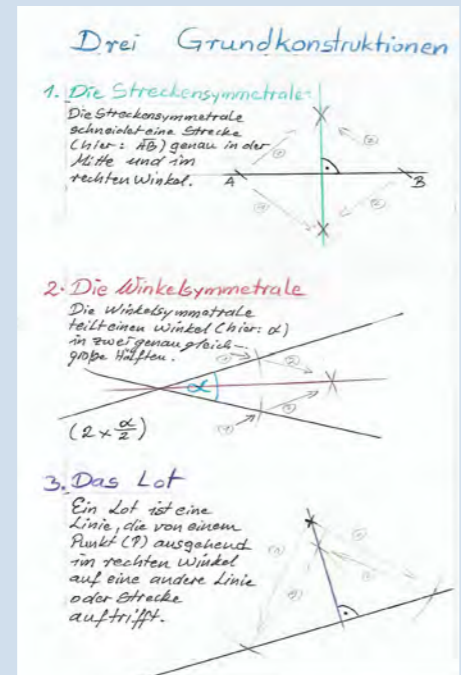 Drei Grundkonstruktionen
1. Die Streckensymmetrale:
Die Streckensymmetrale
schneidet eine Strecke
(hier: AB) genau in der
Mitte und im
rechten Winkel.
A
B
2. Die Winkelsymmetrale
Die Winkelsymmetrale
teilt einen Winkel (hier: α)
in zwei genau gleich-
große Hälften.
α
(2 x α/2)
3. Das Lot
Ein Lot ist eine
Linie, die von einem
Punkt (P) ausgehend
im rechten Winkel
auf eine andere Linie
oder Strecke
auftrifft.